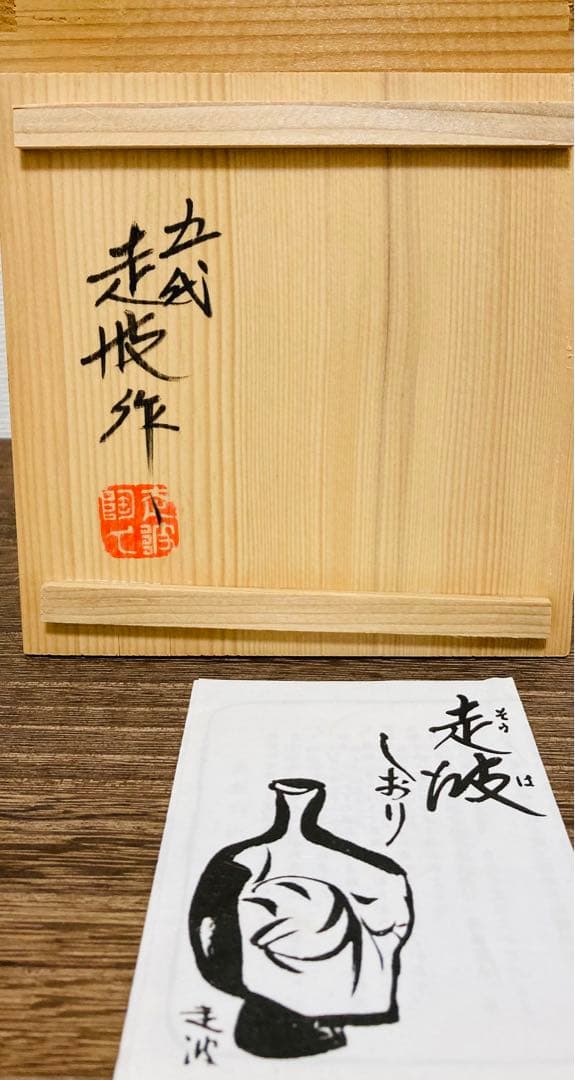 五代
走坡作
走坡
そうは
しおり
走波